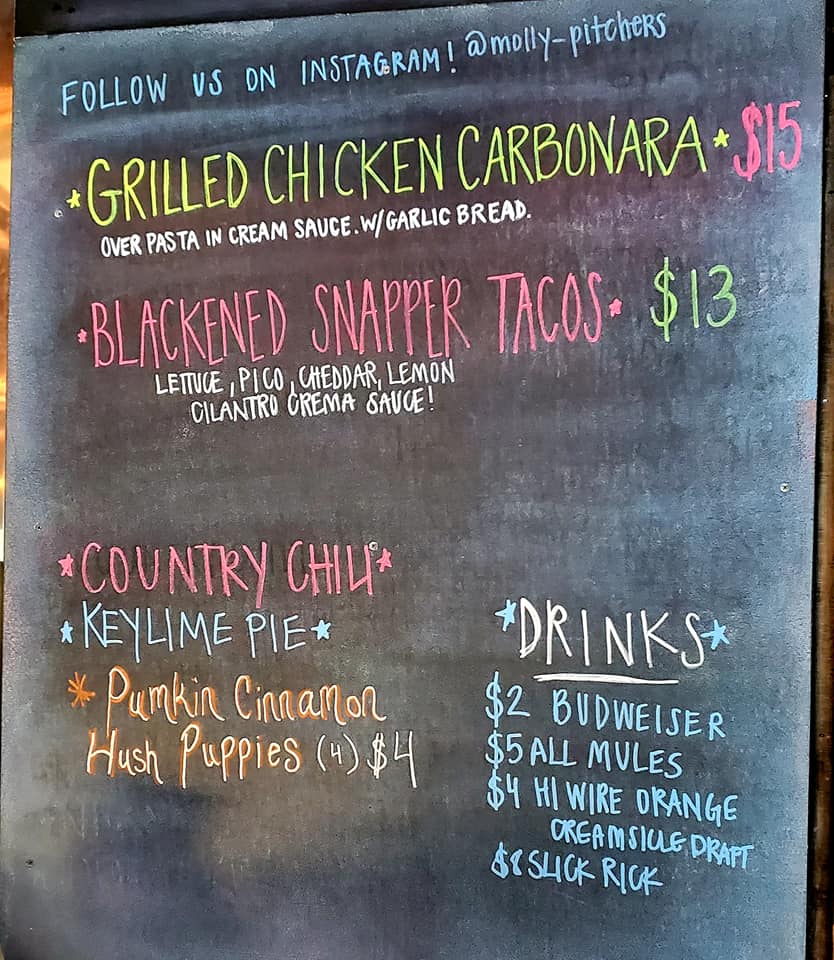 FOLLOW US ON INSTAGRAM! @molly-pitchers
*GRILLED CHICKEN CARBONARA* $15
OVER PASTA IN CREAM SAUCE. W/GARLIC BREAD.
*BLACKENED SNAPPER TACOS* $13
LETTUCE, PICO, CHEDDAR, LEMON
CILANTRO CREMA SAUCE!
*COUNTRY CHILI*
*KEYLIME PIE*
* Pumkin Cinnamon
Hush Puppies (4) $4
*DRINKS*
$2 BUDWEISER
$5 ALL MULES
$4 HI WIRE ORANGE
CREAMSICLE DRAFT
$8 SLICK RICK